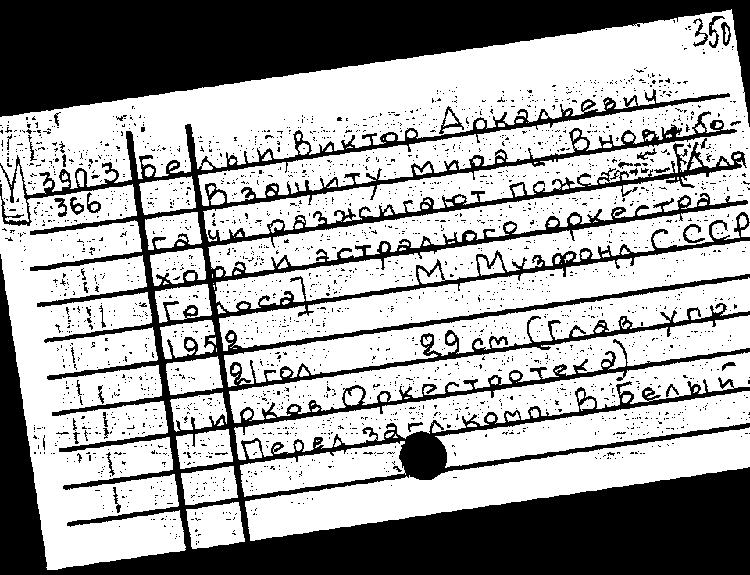 350
Ц 390-3 Белый Виктор Аркадьевич
366 В защиту мира. Вновь бо-
гачи разжигают пожар [Для
хора и эстрадного оркестра.
Голоса] М. Музфонд СССР
1952
21 гол. 29 см (Глав. упр.
цирков. Оркестротека)
Перед загл. комп.: В. Белый